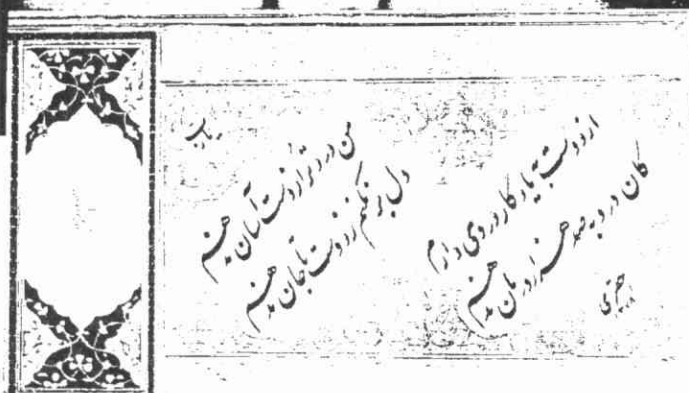 از دوست به یادگار دردی دارم
کان درد به صد هزار درمان ندهم
من درد ترا ز دست آسان ندهم
دل بر نکنم ز دوست تا جان ندهم